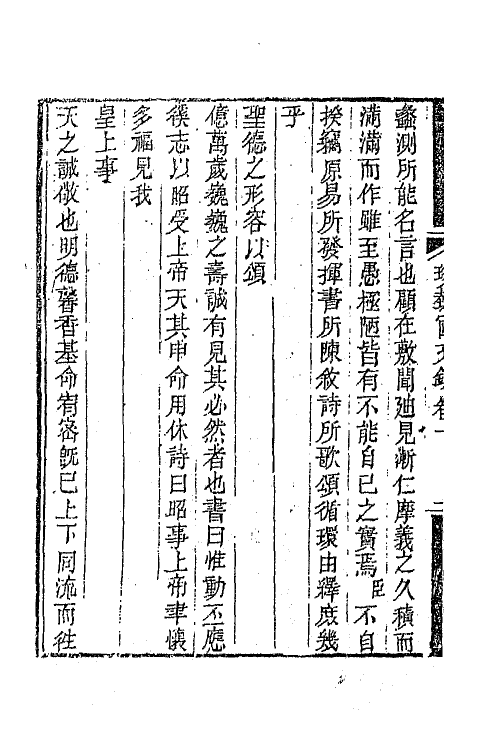 蠡測所能名言也顧在敷聞廸見漸仁摩義之久積而
滿滿而作雖至愚極陋皆有不能自已之實焉臣不自
揆竊原易所發揮書所陳敘詩所歌頌循環由繹庶幾
乎
聖德之形容以頌
億萬歲巍巍之壽誠有見其必然者也書曰惟動丕應
徯志以昭受上帝天其申命用休詩曰昭事上帝聿懷
多福見我
皇上事
天之誠敬也明德馨香基命宥密旣已上下同流而徃